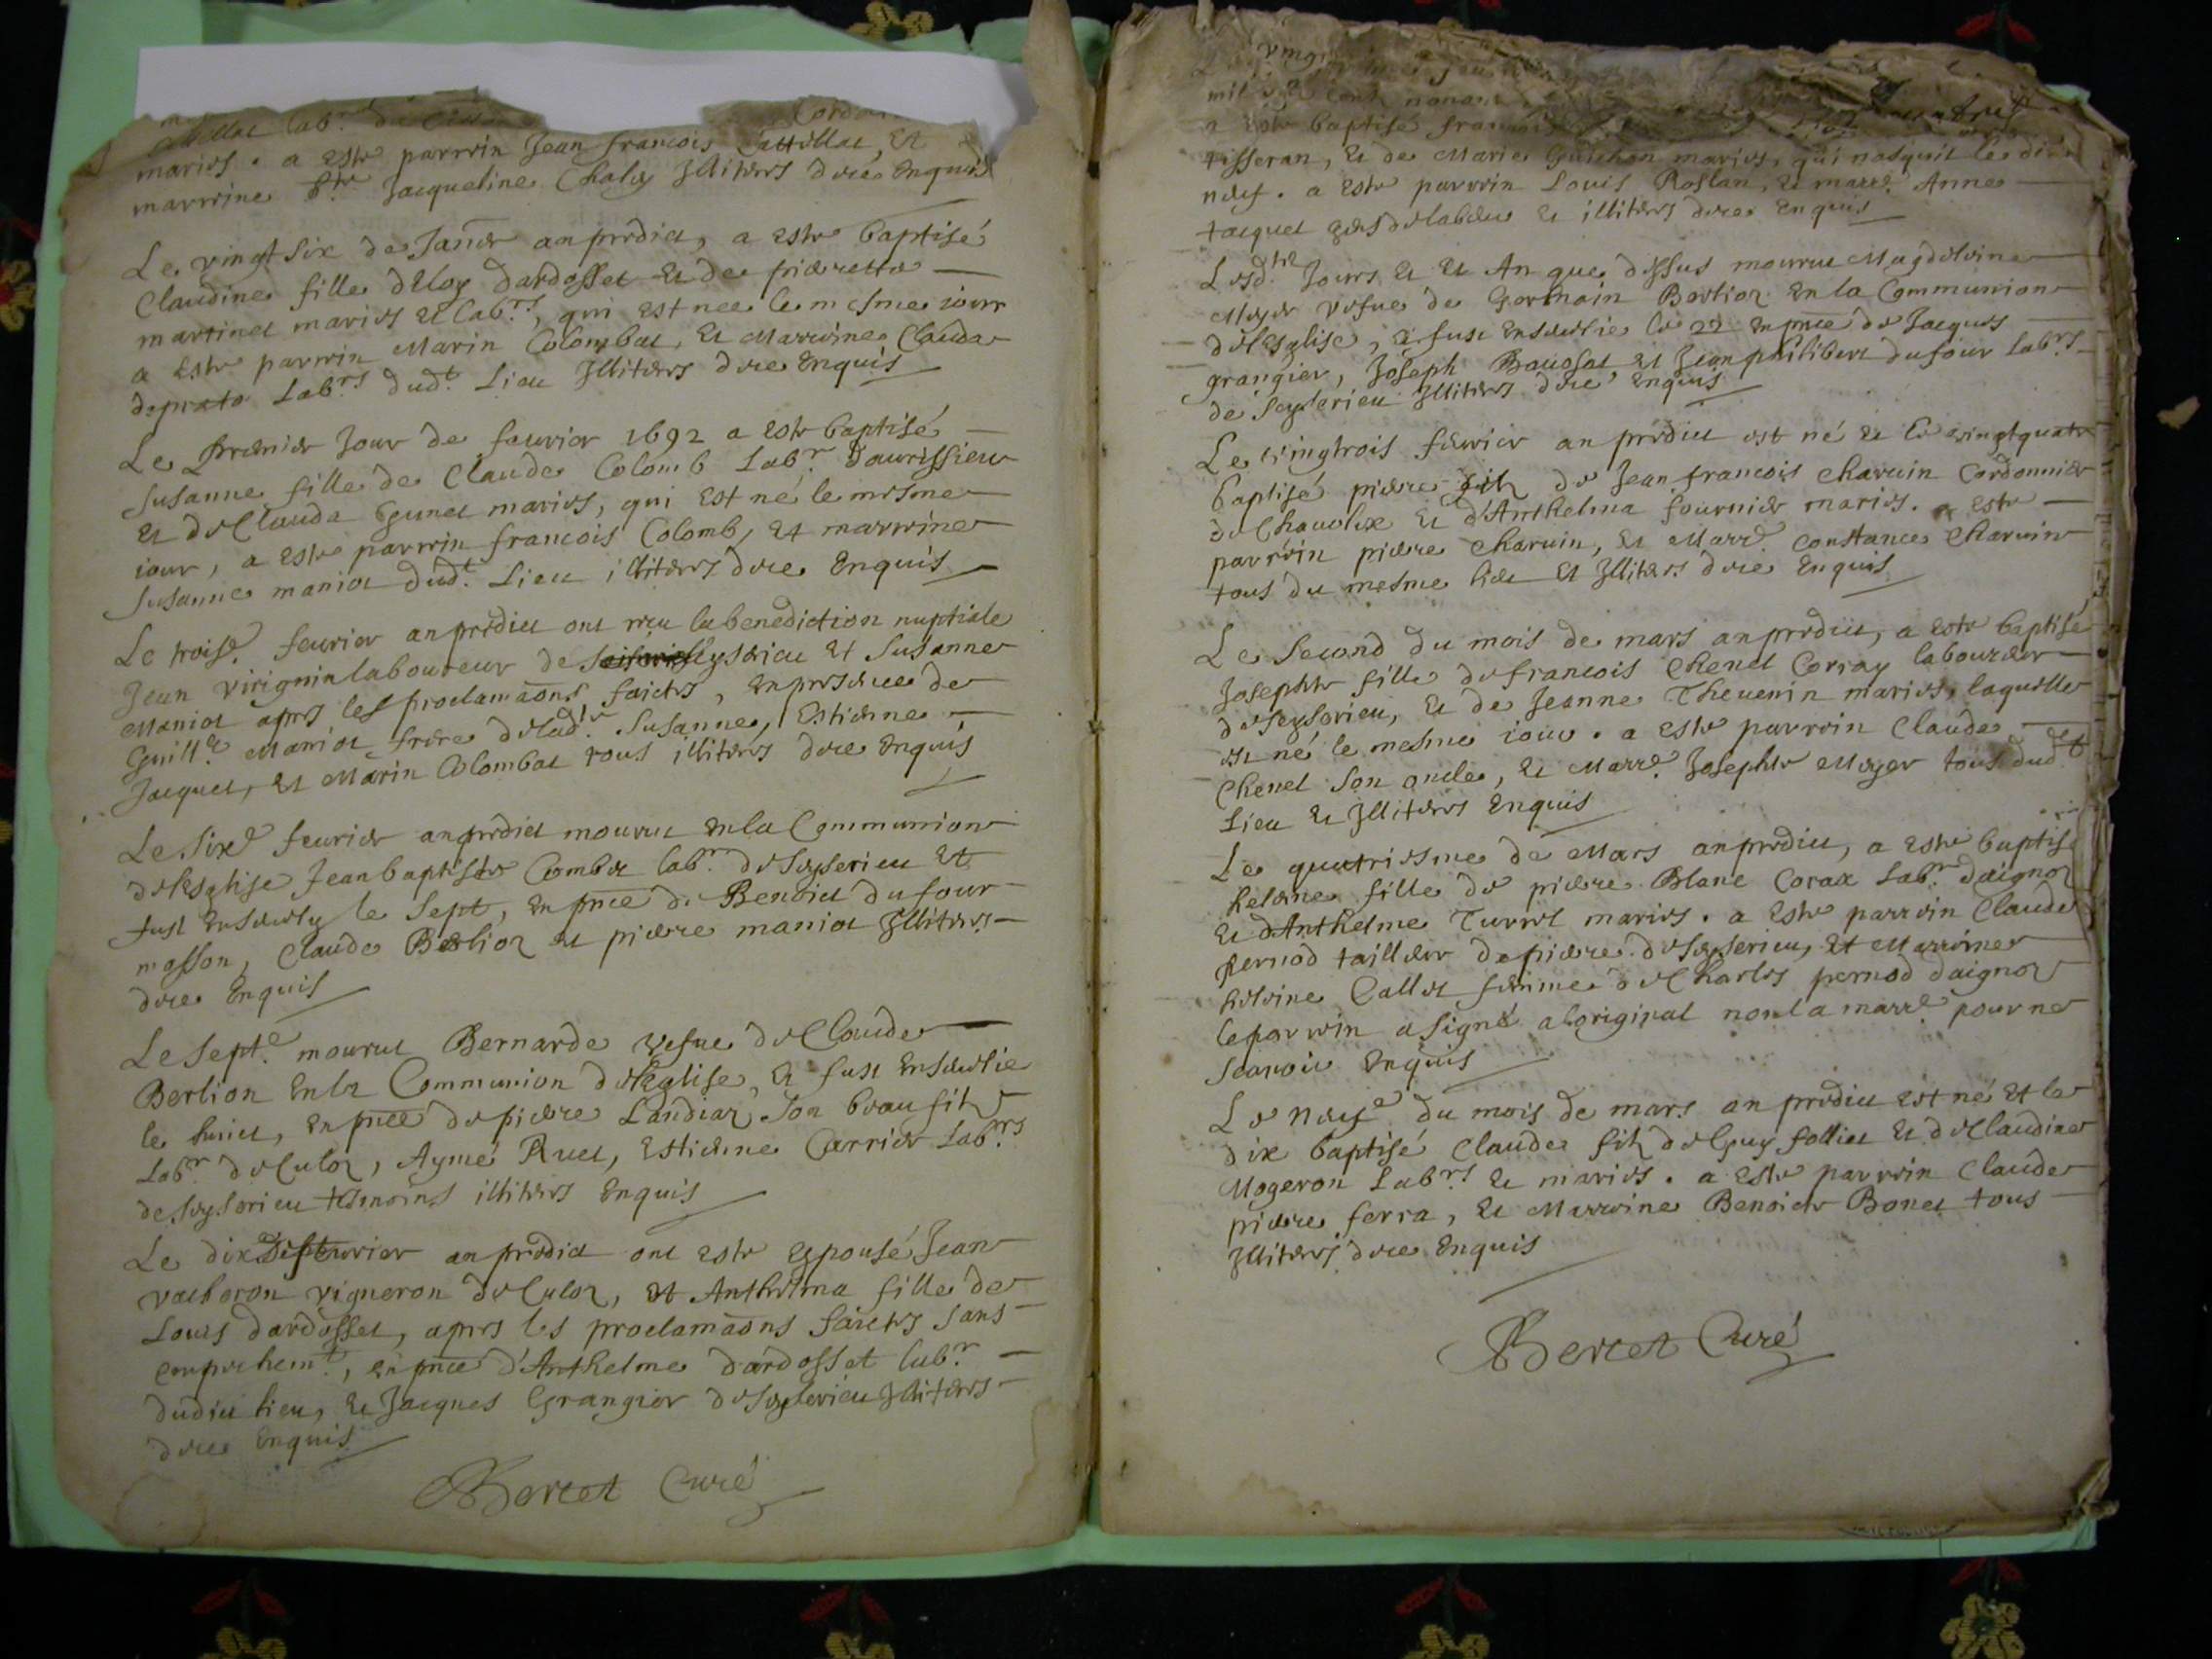 maries. a este parrein Jean francois Cattillat, et
marreine Jacqueline Chaley Illiteres de ce Enquis
Le vingt six de Janer an predict, a este baptisé
Claudine fille d'Eloy dardosset et de pierrette
martinet maries et labrs, qui est nee le mesme jour
a este parrein Marin Colombat, et Marreine Clauda
deprato Labrs dudt. Lieu Illiteres de ce Enquis
Le Premier Jour de feuvrier 1692 a este baptisé
Susanne fille de Claude Colomb Labr. d'aurissieu
et de Clauda Brunet maries, qui est né le mesme
iour, a este parrein francois Colomb, et marreine
Susanne maniet dudt. Lieu illiteres de ce Enquis
Le troise. feurier an predict ont receu la benediction nuptiale
Jean virignin laboureur de Seyserieu et Susanne
Maniet apres les proclamaons faictes, en presence de
Guille Maniet frere de lade. Susanne, Estienne
Jacquet, et Marin Colombat tous illiteres de ce Enquis
Le sixe feurier an predict mourut en la Communion
de l'esglise Jean baptiste Combet labr. de Seyserieu et
fust Ensevely le sept, en pnce de Benoict dufour
masson, Claude Berlioz et pierre maniet Illiteres
de ce Enquis
Le septe. mourut Bernarde vefue de Claude
Berlion en la Communion de l'eglise, et fust Ensevelie
le huict, en pnce de pierre Landraz son beau filz
Labr de Culoz, Aymé Ruet, Estienne Carrier Labrs
de Seyserieu tesmoins illiteres Enquis
Le dix feurier an predict ont este Espousé Jean
vacheron vigneron de Culoz, et Anthelma fille de
Louis dardosset, apres les proclamaons faictes sans
empechemt., en pnce d'Anthelme dardosset labr.
dudict lieu, et Jacques Grangier de Seyserieu Illiteres
de ce Enquis
Bercet Curé
mil six cent nonante
a este baptisé francois
tisseran, et de Marie Guichon maries, qui nasquit le dix
neuf. a este parrein Louis Roslan, et marre. Anne
tacquet et illiteres de ce Enquis
Lesd. Jours et An que dessus mourut Magdeleine
Meyer vefue de Germain Bertioz en la Communion
de l'esglise, et fust Ensevelie le 22 en pnce de Jacques
grangier, Joseph Bavosat et Jean philibert dufour Labrs
de Seyserieu Illiteres de ce Enquis
Le vingtrois feurier an predict est né et le vingtquatre
baptisé pierre filz de Jean francois charuin Cordonnier
de Chavolex et d'Anthelma fournier maries. a este
parrein pierre charuin, et Marre. constance charuin
tous du mesme lieu et Illiteres de ce Enquis
Le second du mois de mars an predict, a este baptisé
Josephte fille de francois Chenet Corray laboureur
de Seyserieu, et de Jeanne Thevenin maries, laquelle
est né le mesme iour. a este parrein Claude
Chenet son oncle, et Marre. Josephte Meyer tous dudt
Lieu et Illiteres Enquis
Le quatriesme de Mars an predict, a este baptisé
heleine fille de pierre Blanc Corax Labr. d'aignoz
et d'Anthelme Turrel maries. a este parrein Claude
pernod tailleur de pierre de Seyserieu, et Marreine
heleine Callet femme de Charles pernod daignoz
le parrein a signé a l'original non la marre pour ne
scavoir Enquis
Le neufe du mois de mars an predict est né et le
dix baptisé Claude filz de Guy folliet et de Claudine
Mogeron Labrs. et maries. a este parrein Claude
pierre ferra, et Marreine Benoicte Bonet tous
Illiteres de ce Enquis
Bercet Curé